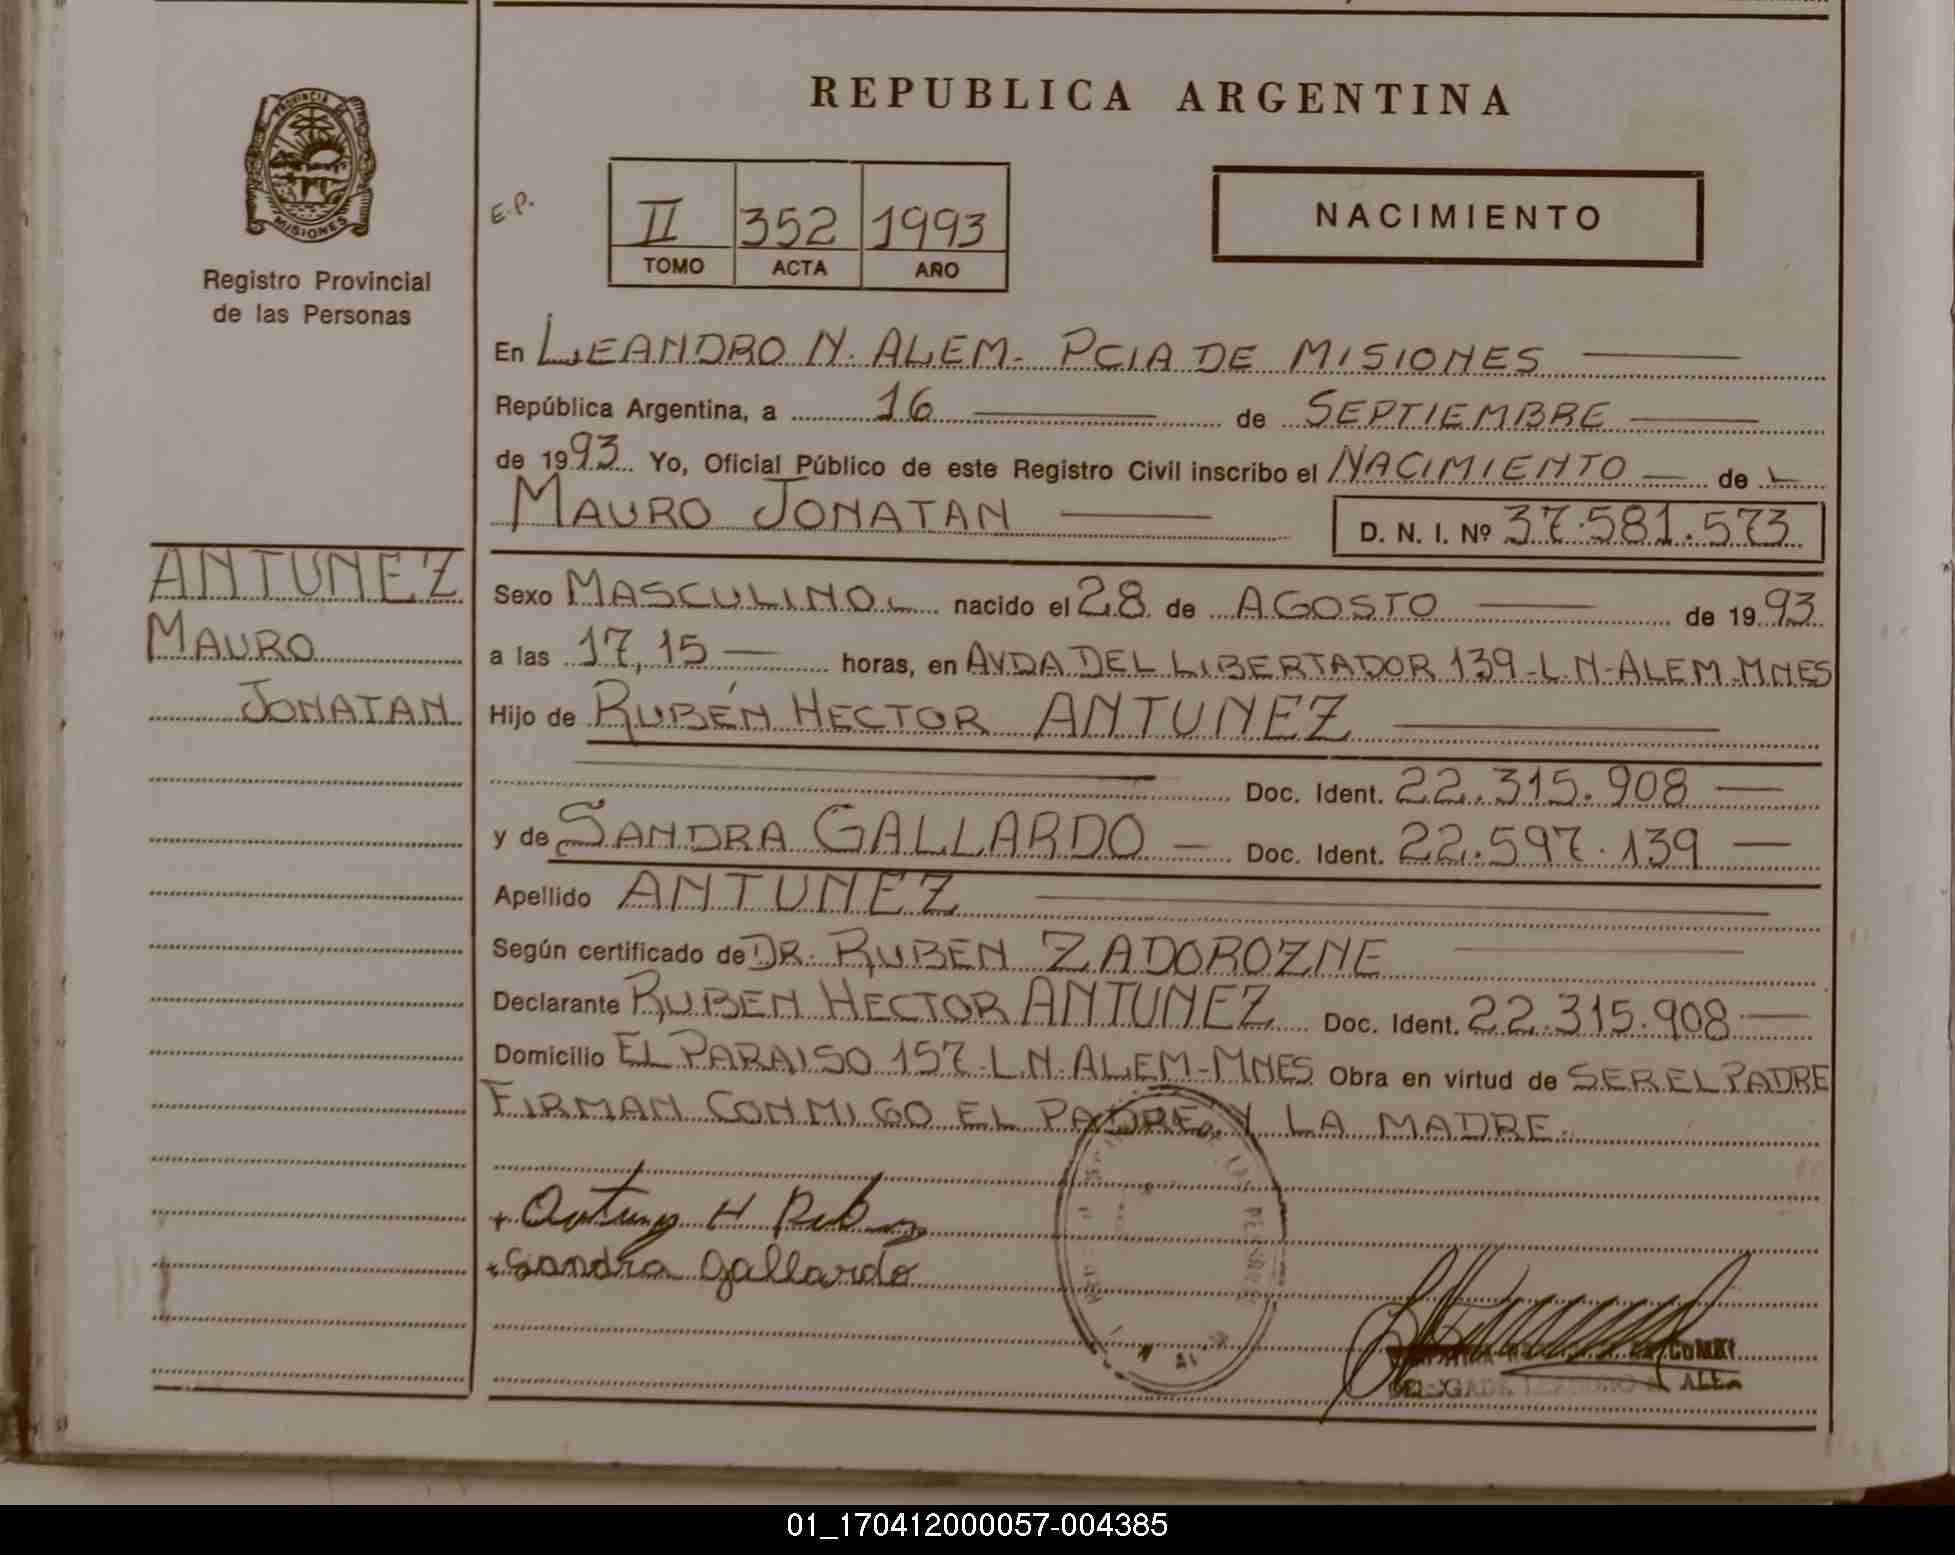 REPUBLICA ARGENTINA
PROVINCIA DE
MISIONES
Registro Provincial
de las Personas
E.P.
II 352 1993
TOMO ACTA AÑO
NACIMIENTO
En LEANDRO N. ALEM- PCIA DE MISIONES
República Argentina, a 16 de SEPTIEMBRE
de 1993 Yo, Oficial Público de este Registro Civil inscribo el NACIMIENTO de
MAURO JONATAN
D. N. I. Nº 37.581.573
ANTUNEZ
MAURO
JONATAN
Sexo MASCULINO nacido el 28 de AGOSTO de 1993
a las 17,15 horas, en AVDA DEL LIBERTADOR 139-L.N-ALEM-MNES
Hijo de RUBÉN HECTOR ANTUNEZ
Doc. Ident. 22.315.908
y de SANDRA GALLARDO Doc. Ident. 22.597.139
Apellido ANTUNEZ
Según certificado de DR. RUBEN ZADOROZNE
Declarante RUBEN HECTOR ANTUNEZ Doc. Ident. 22.315.908
Domicilio EL PARAISO 157-L.N.ALEM-MNES Obra en virtud de SER EL PADRE
FIRMAN CONMIGO EL PADRE Y LA MADRE.
+ Antunez H Ruben
Sandra Gallardo
ALEM
01_170412000057-004385